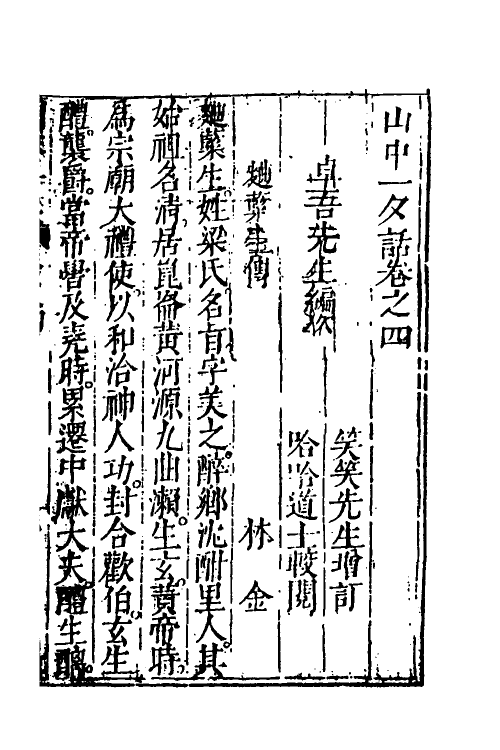 山中一夕話卷之四
卓吾先生編次
笑笑先生增訂
哈哈道士較閱
麹蘖生傳
林金
麹蘖生姓梁氏名旨字美之醉鄉沈酣里人其
始祖名淸居崑崙黃河源九曲瀨生玄黃帝時
爲宗廟大禮使以和洽神人功封合歡伯玄生
醴襲爵當帝嚳及堯時累遷中獻大夫醴生醽